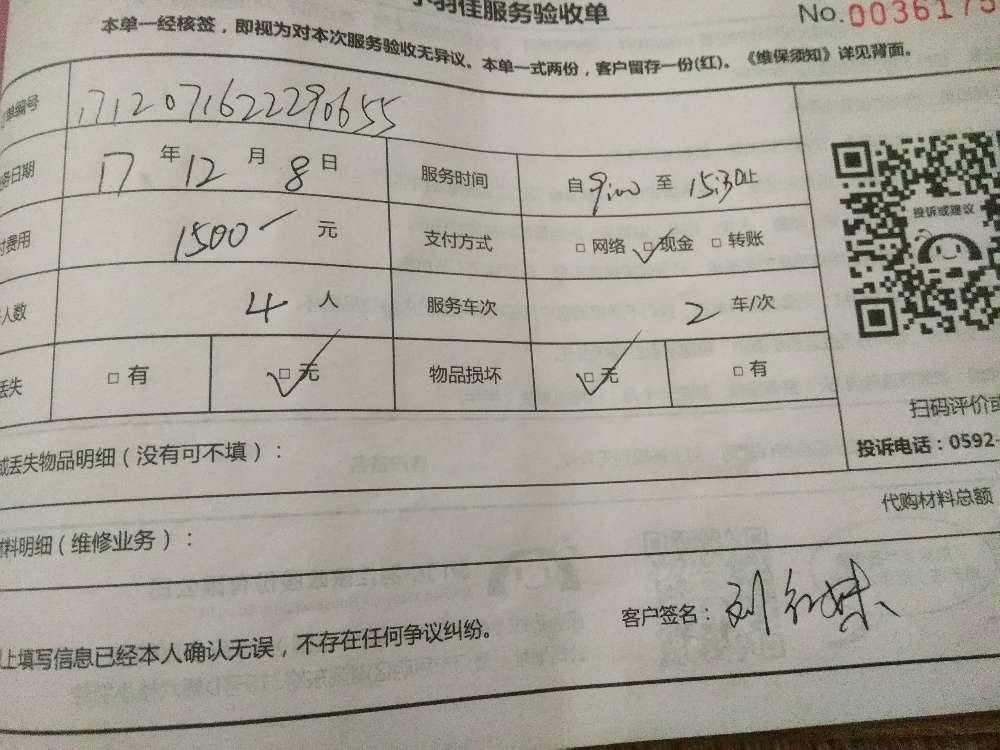 小羽佳服务验收单
No.0036175
本单一经核签，即视为对本次服务验收无异议。本单一式两份，客户留存一份(红)。《维保须知》详见背面。
单编号 1712071622290655
务日期 17 年 12 月 8 日 服务时间 自 9:00 至 15:30 止
付费用 1500 元 支付方式 □ 网络 □ 现金 □ 转账
人数 4 人 服务车次 2 车/次
丢失 □ 有 □ 无 物品损坏 □ 无 □ 有
投诉或建议
扫码评价或
投诉电话：0592-
或丢失物品明细（没有可不填）：
代购材料总额
材料明细（维修业务）：
客户签名：刘红妹
以上填写信息已经本人确认无误，不存在任何争议纠纷。